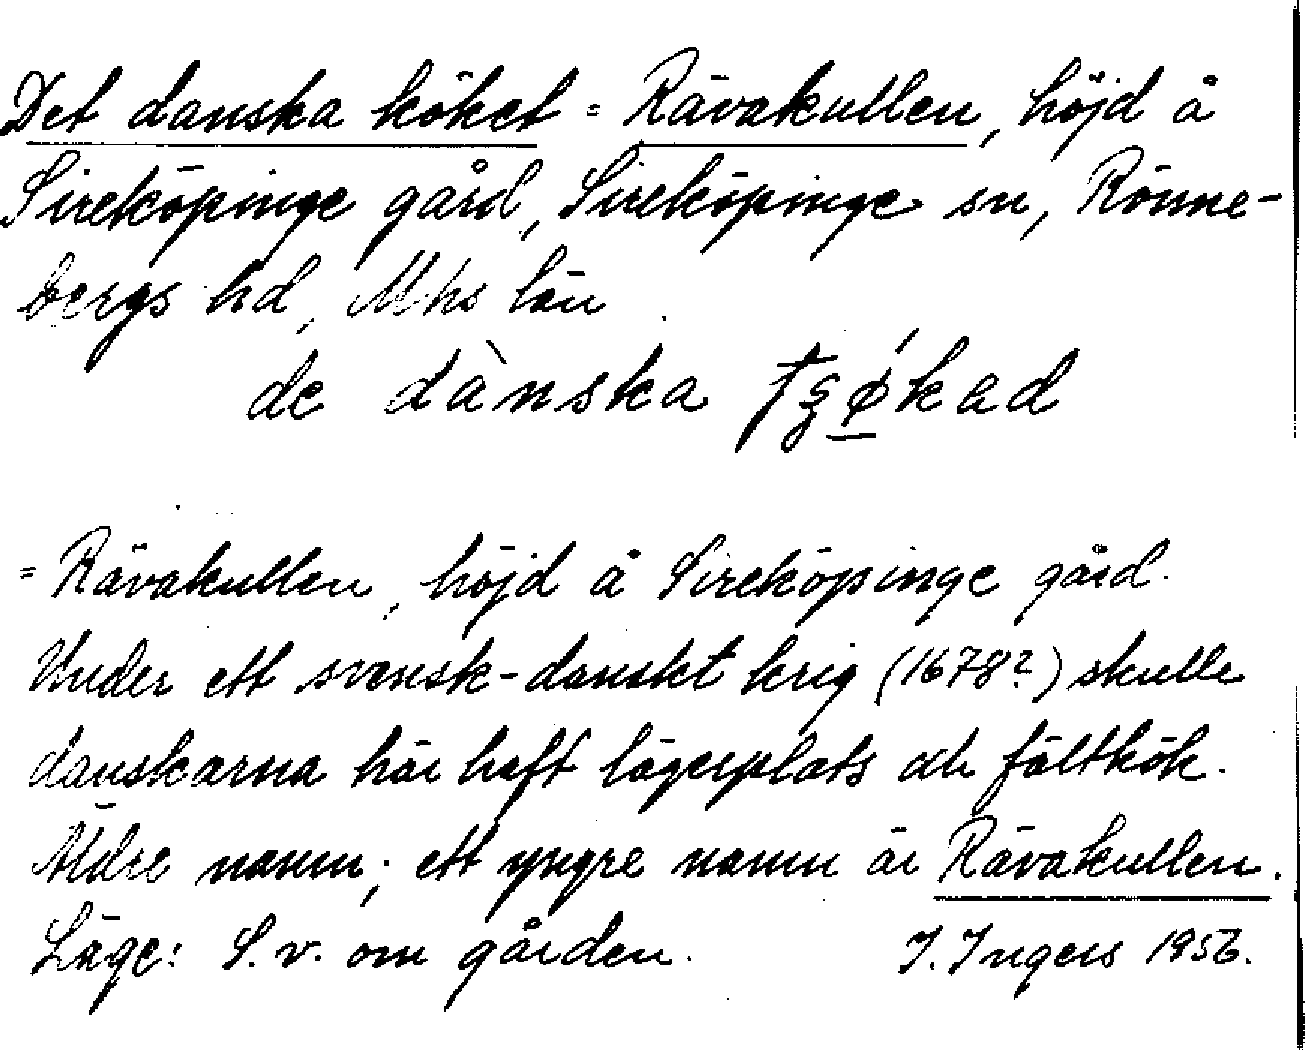 Det danska köket = Rävakullen, höjd å
Sireköpinge gård, Sireköpinge sn, Rönne-
bergs hd, Mhs län.
de dànska
= Rävakullen, höjd å Sireköpinge gård.
Under ett svensk-danskt krig (1678?) skulle
danskarna här haft lägerplats och fältkök.
Äldre namn; ett yngre namn är Rävakullen.
Läge: S.v. om gården. I. Ingers 1956.